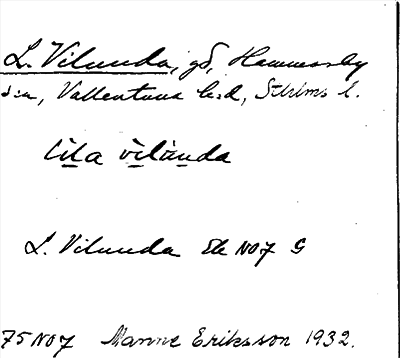 L. Vilunda, gd, Hammarby
sn, Vallentuna hd, Sthlms l.
lìla vìlùnda
L. Vilunda Ek NO7 G
75 NO7 Manne Eriksson 1932.